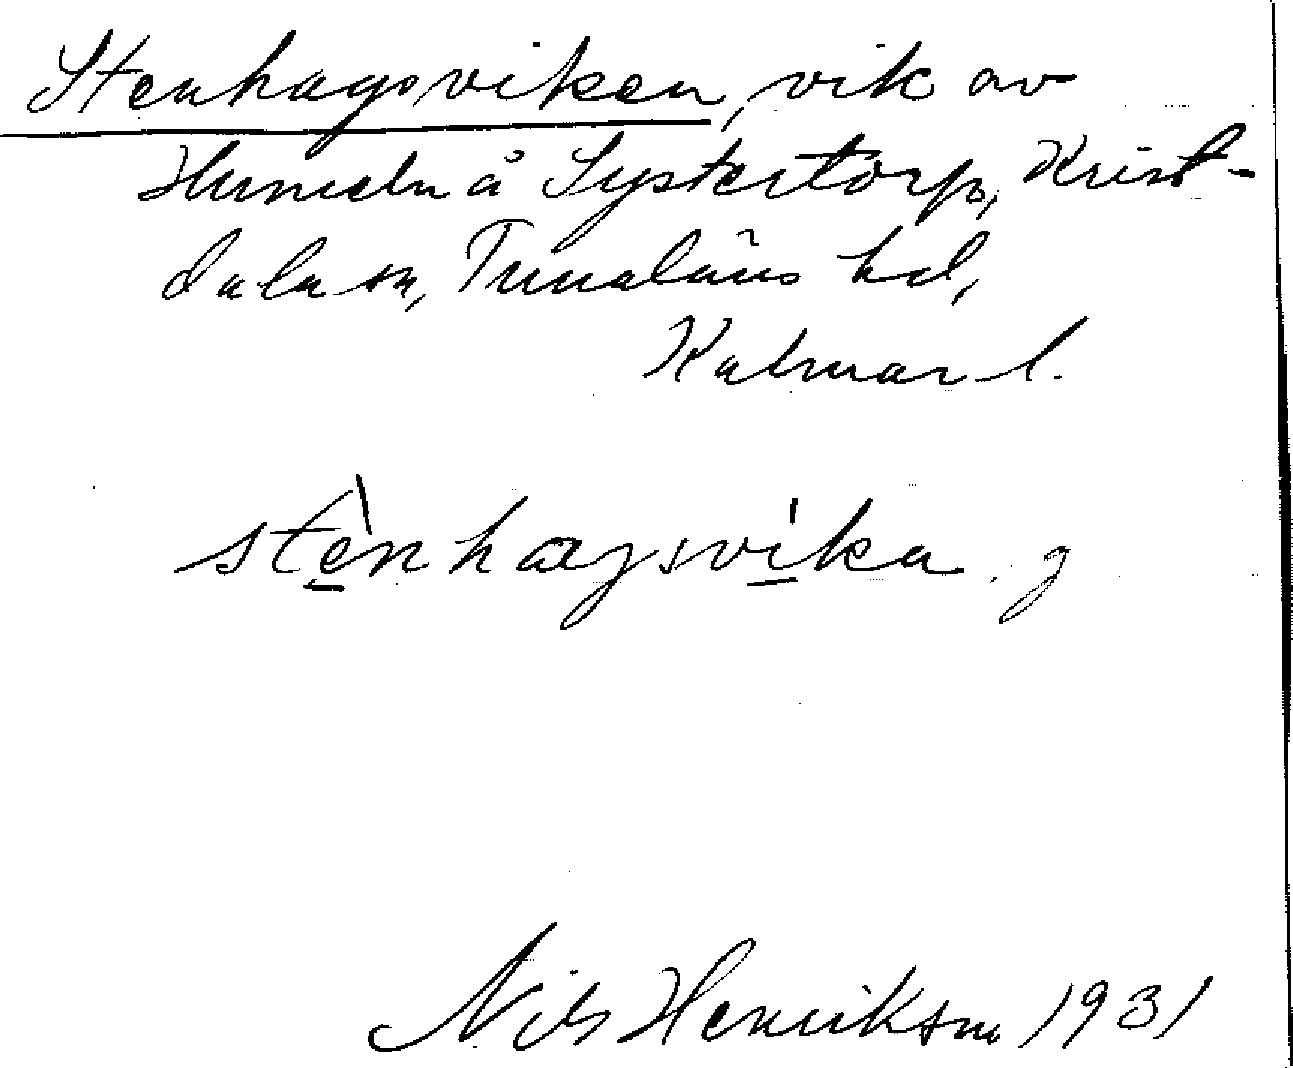 Stenhagsviken, vik av
Humeln å Systertorp, Krist-
dala sn, Tunaläns hd,
Kalmar l.
stènhagsvíka. g
Nils Henrikson 1931